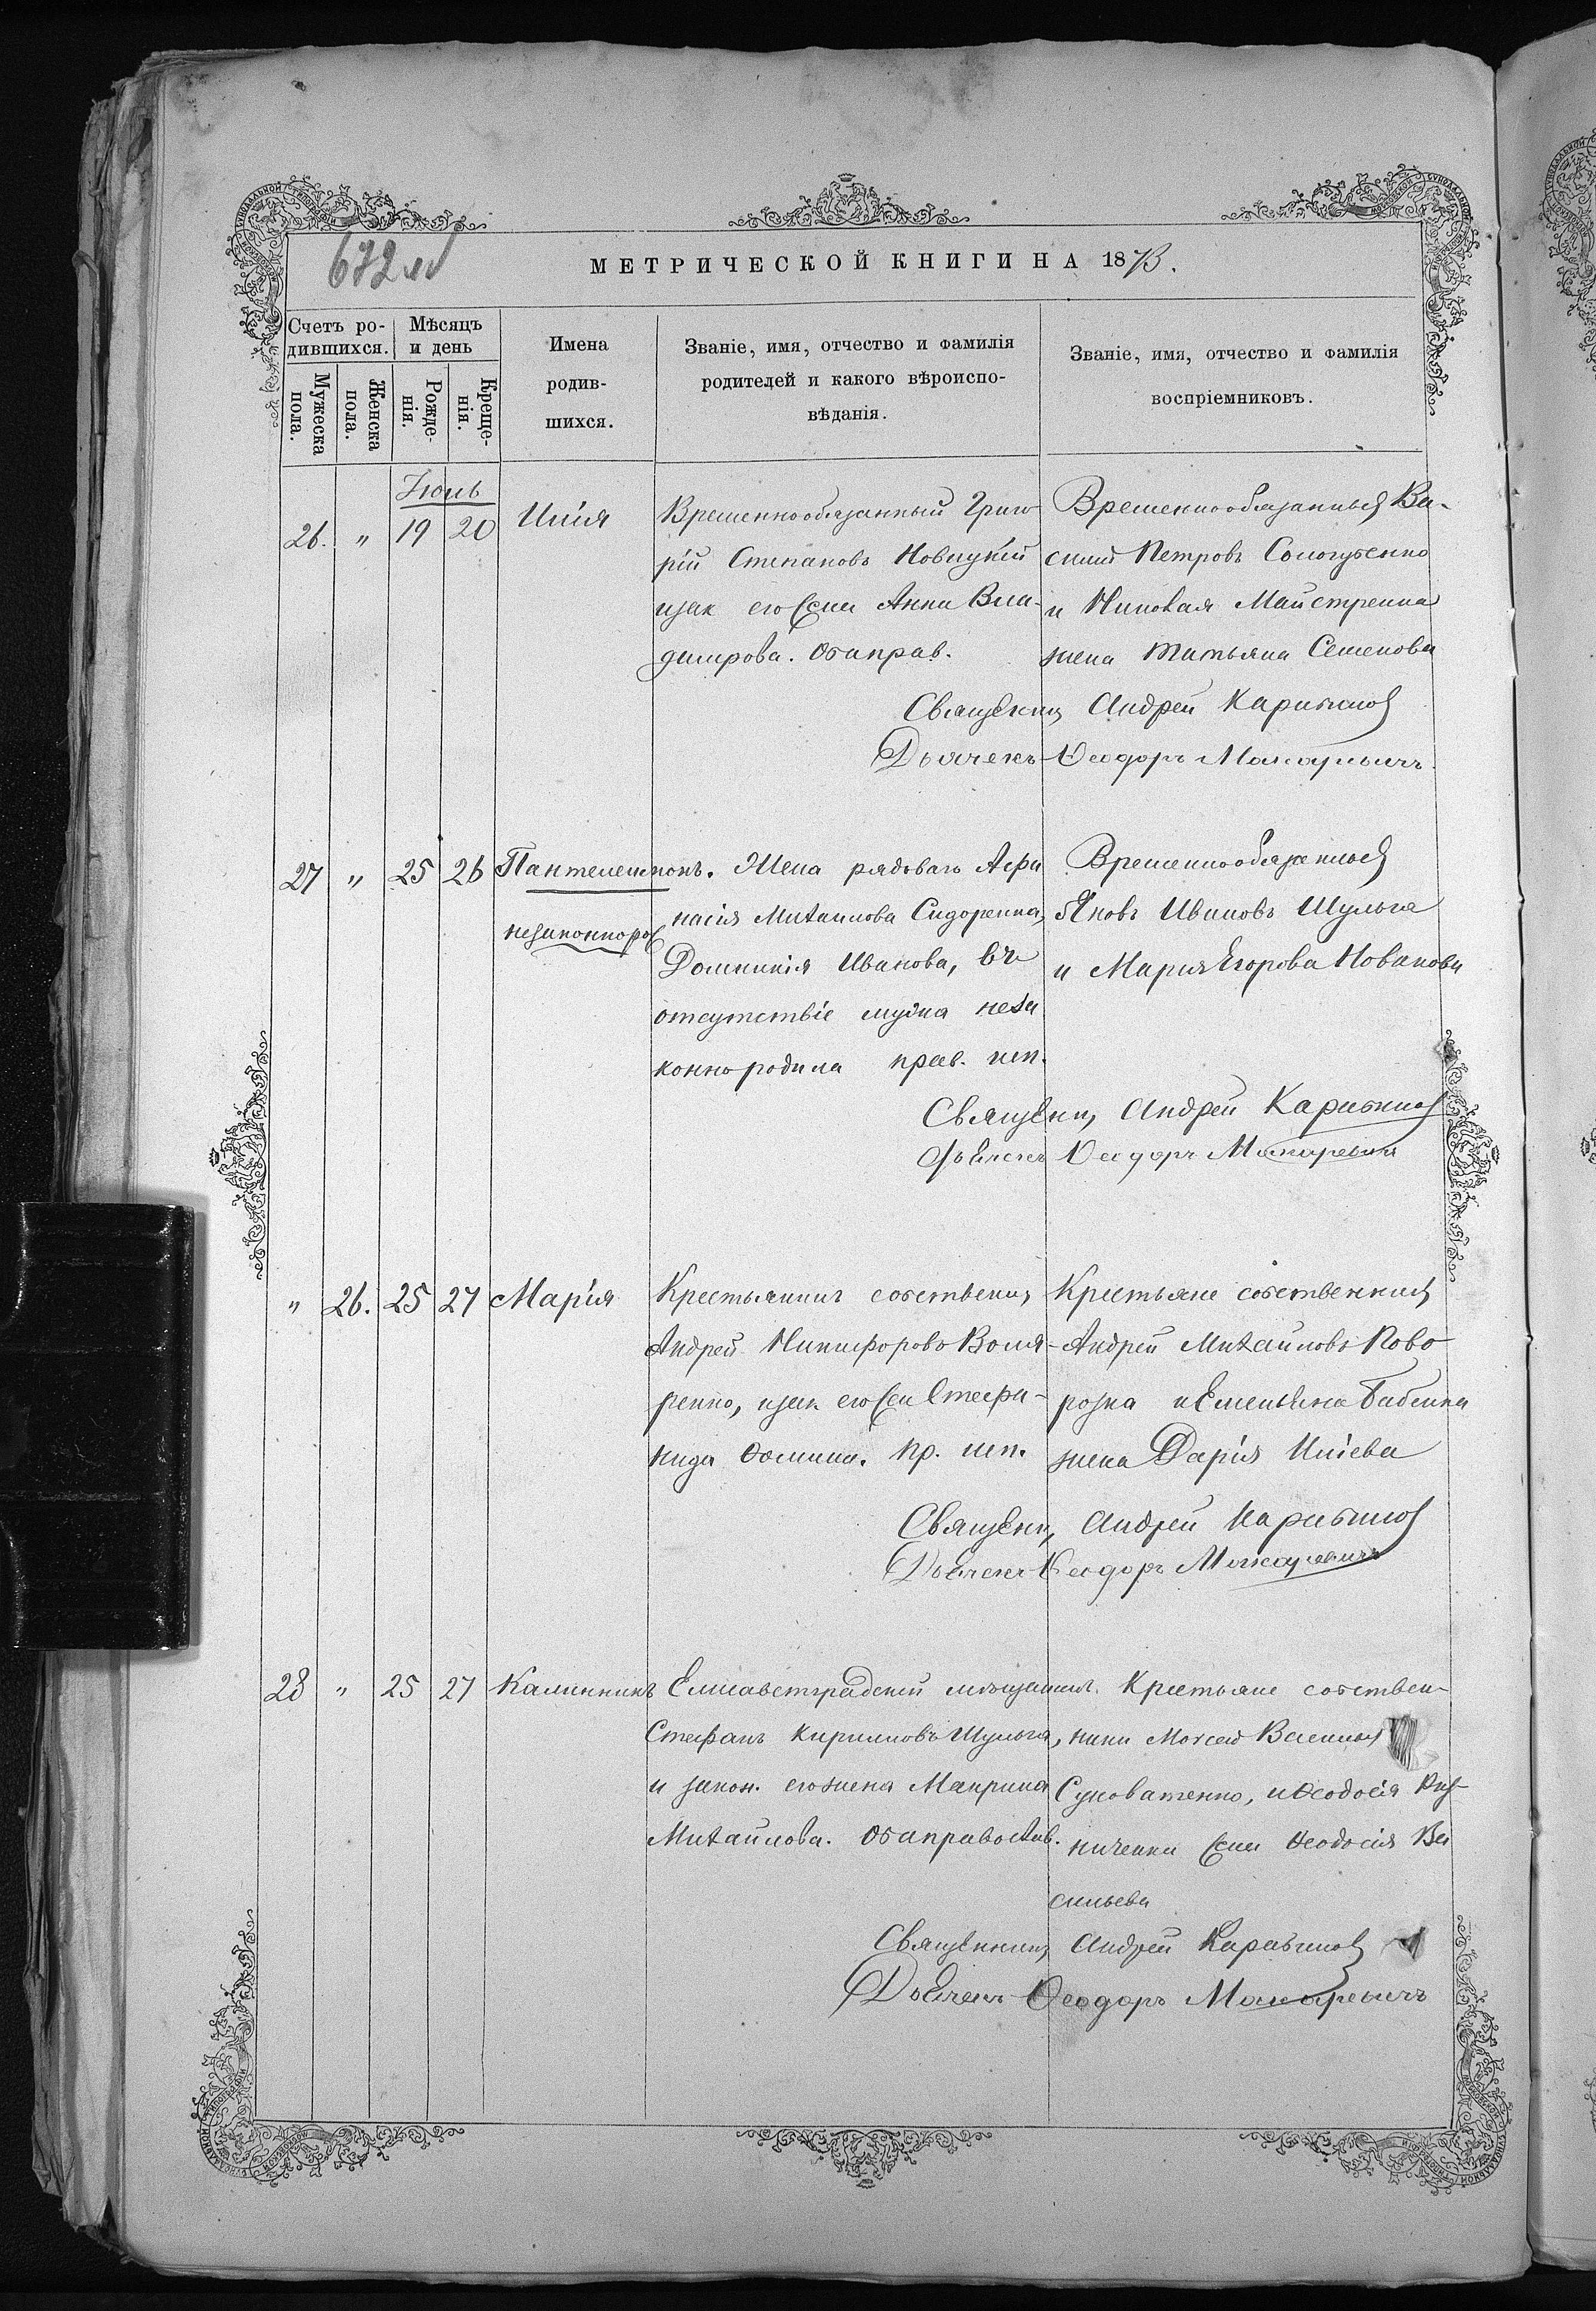 МЕТРИЧЕСКОЙ КНИГИ НА 1873.
Счетъ ро-
дившихся.
Мѣсяцъ
и день
Мужеска
пола.
Женска
пола.
Рожде-
нія.
Креще-
нія.
Имена
родив-
шихся.
Званіе, имя, отчество и фамилія
родителей и какого вѣроиспо-
вѣданія.
Званіе, имя, отчество и фамилія
воспріемниковъ.
26. " 19 20 Илія
Временнообязанный Григо
рій Степановъ Новицкій
изак его жена Анна Вла-
димирова. Оба прав.
Временнообязанные Ва-
силій Петровъ Сологубенко
и Майстренка
жена Татьяна Семенова
Священник Андрей
Дьячекъ Ѳеодоръ Макаревичъ
27 " 25 26 Пантелеимонъ.
незаконнорож
Жена рядоваго Афа
насія Михаилова Сидоренка,
Домникія Иванова, въ
отсутствіе мужа неза
конно родила прав. исп.
Временнообязанные
Яковъ Ивановъ Шульга
и Марія Егорова Новакова
Священник Андрей
Дьячекъ Ѳеодоръ Макаревичъ
" 26. 25 27 Марія
Крестьянинъ собственик
Андрей Никифоровъ Воля-
ренко, изак его жена Стефа-
нида Ѳомина. Пр. исп.
Крестьяне собственники
Андрей Михаиловъ Пово
розка и Емельяна Бабенка
жена Дарія Иліева
Священик Андрей
Дьячекъ Ѳеодоръ Макаревичъ
28 " 25 27 Каллиникъ
Елисаветградскій мѣщанинъ
Стефанъ Кириловъ Шульга,
и закон. его жена Макрина
Михаилова. Оба православ.
Крестьяне собствен-
ники Моѵсей Васильев
Суховатенко, и Ѳеодосія Рез-
ниченка жена Ѳеодосія Ва
сильева
Священник Андрей
Дьячекъ Ѳеодоръ Макаревичъ